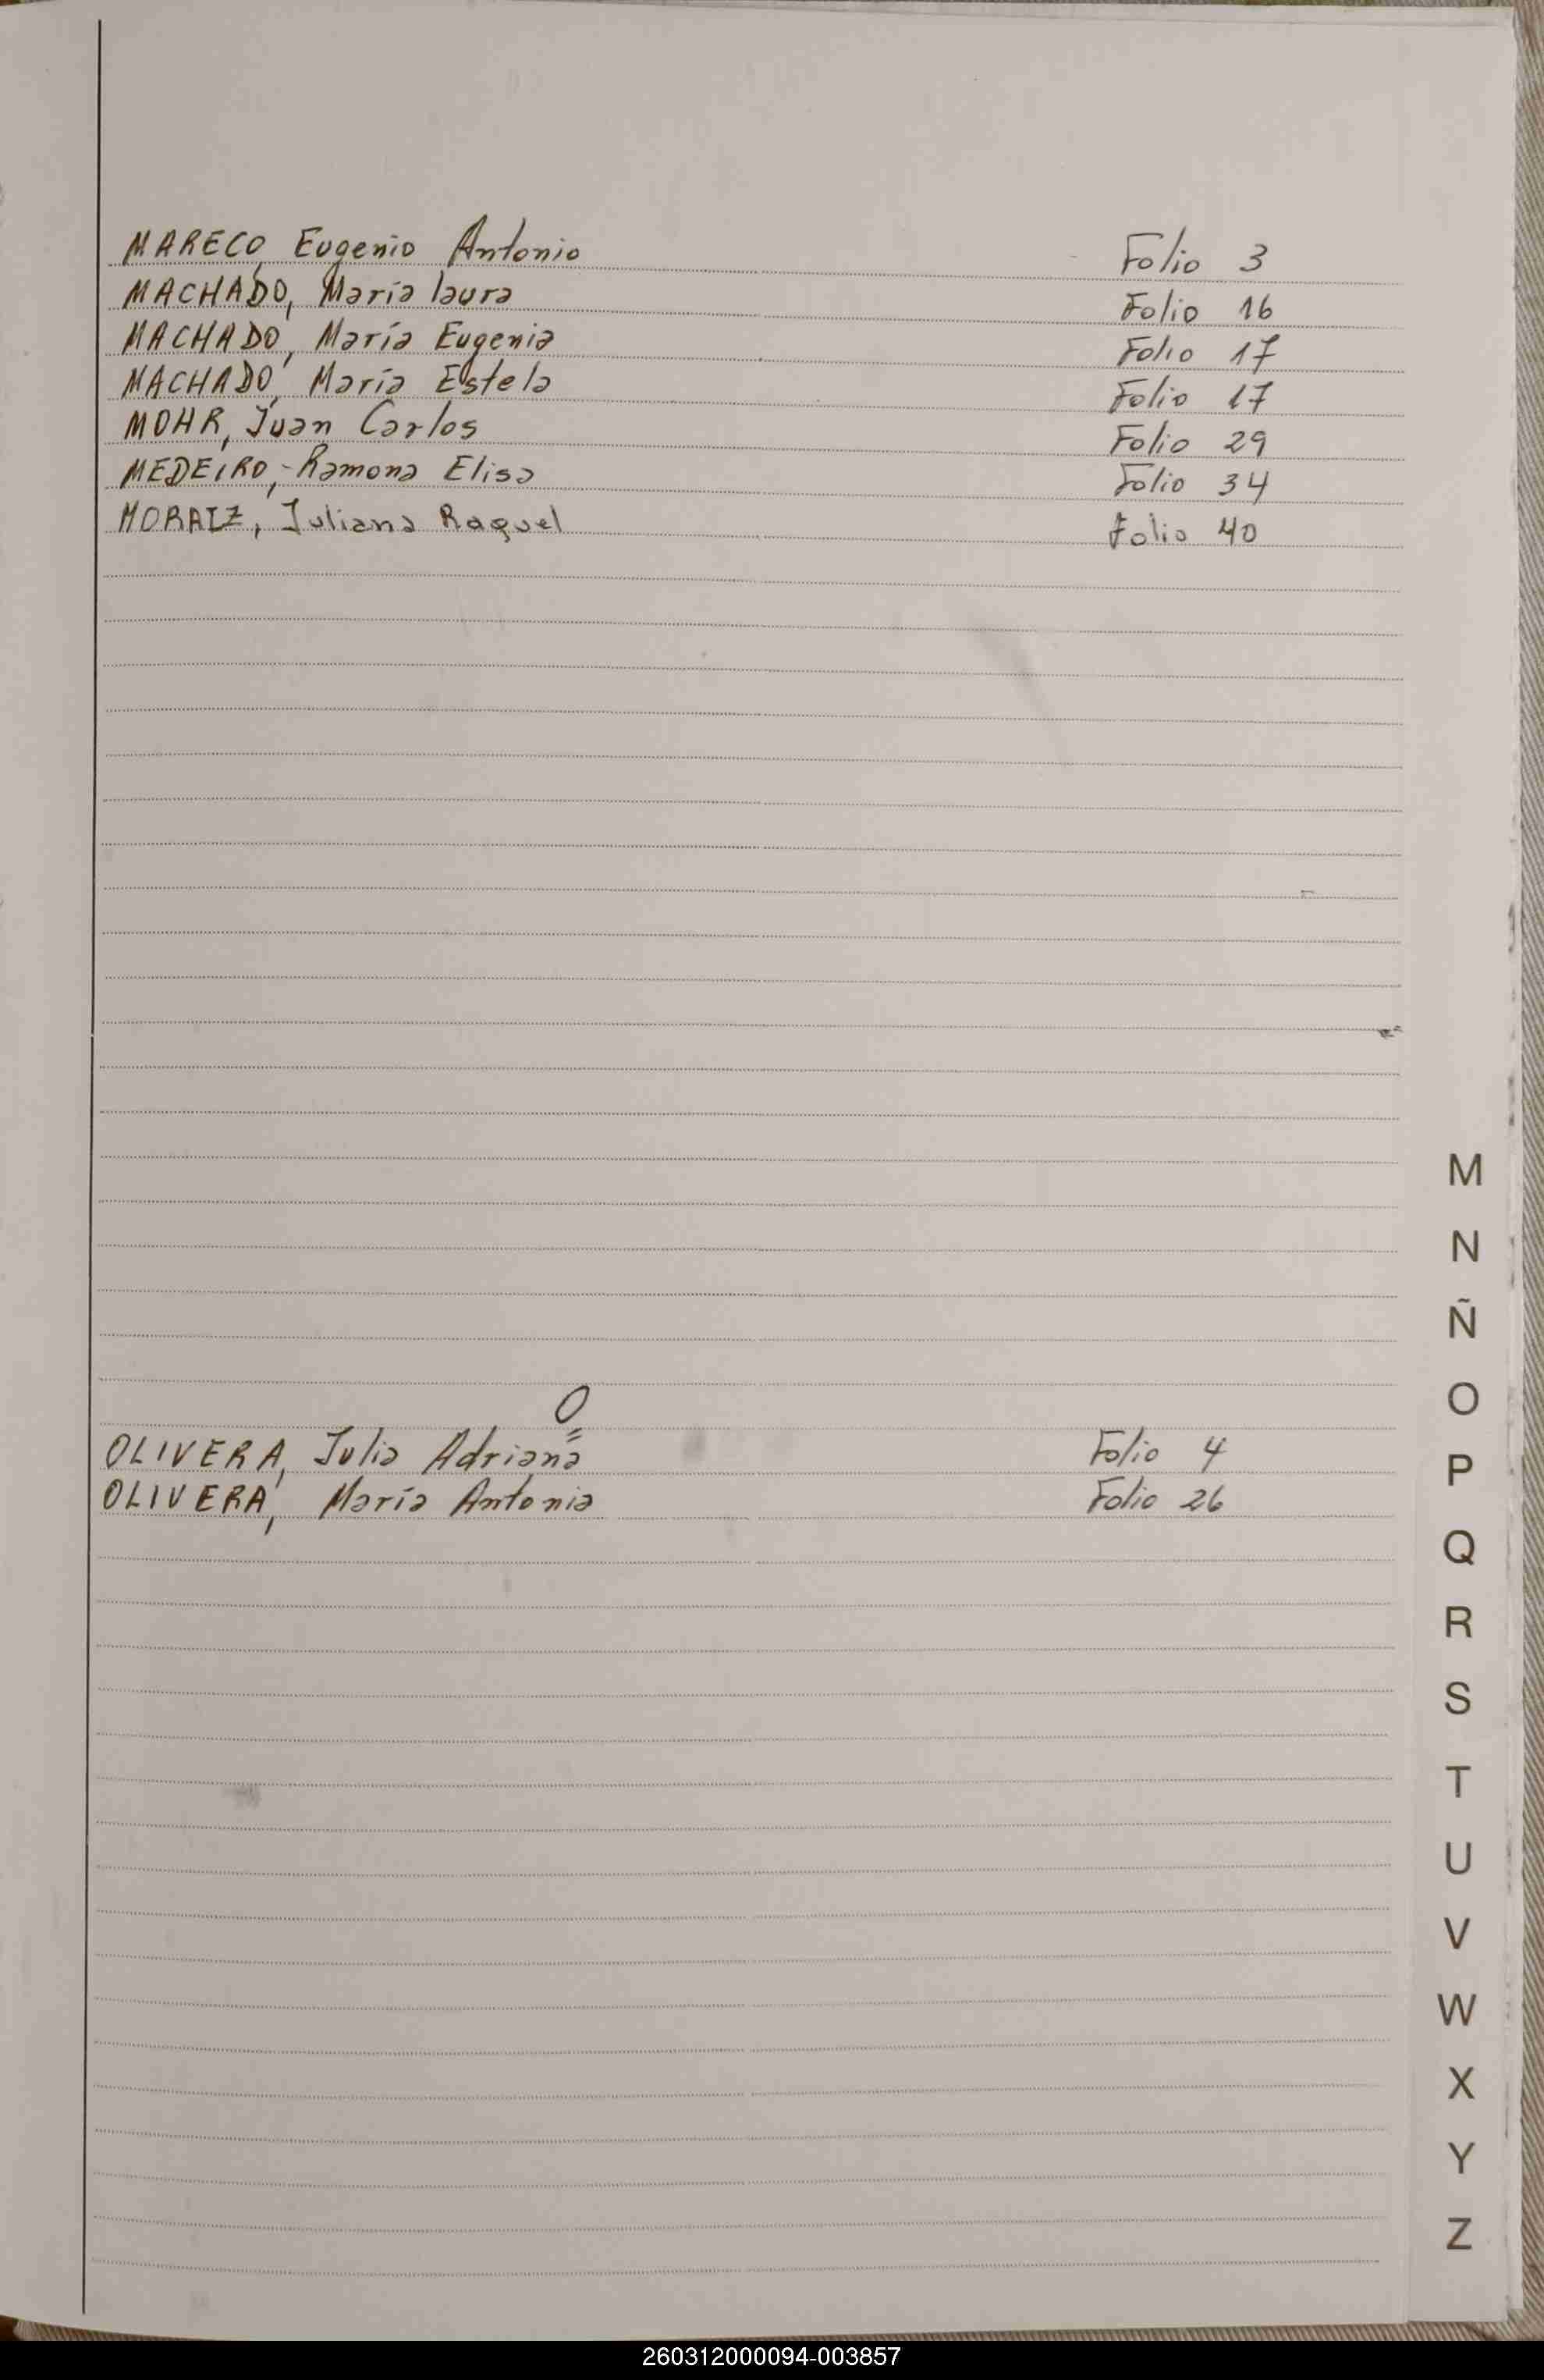 MARECO, Eugenio Antonio Folio 3
MACHADO, María laura Folio 16
MACHADO, María Eugenia Folio 17
MACHADO, María Estela Folio 17
MOHR, Juan Carlos Folio 29
MEDEIRO, Ramona Elisa Folio 34
MORAIZ, Juliana Raquel Folio 40
O
OLIVERA, Julia Adriana Folio 4
OLIVERA, María Antonia Folio 26
M
N
Ñ
O
P
Q
R
S
T
U
V
W
X
Y
Z
260312000094-003857